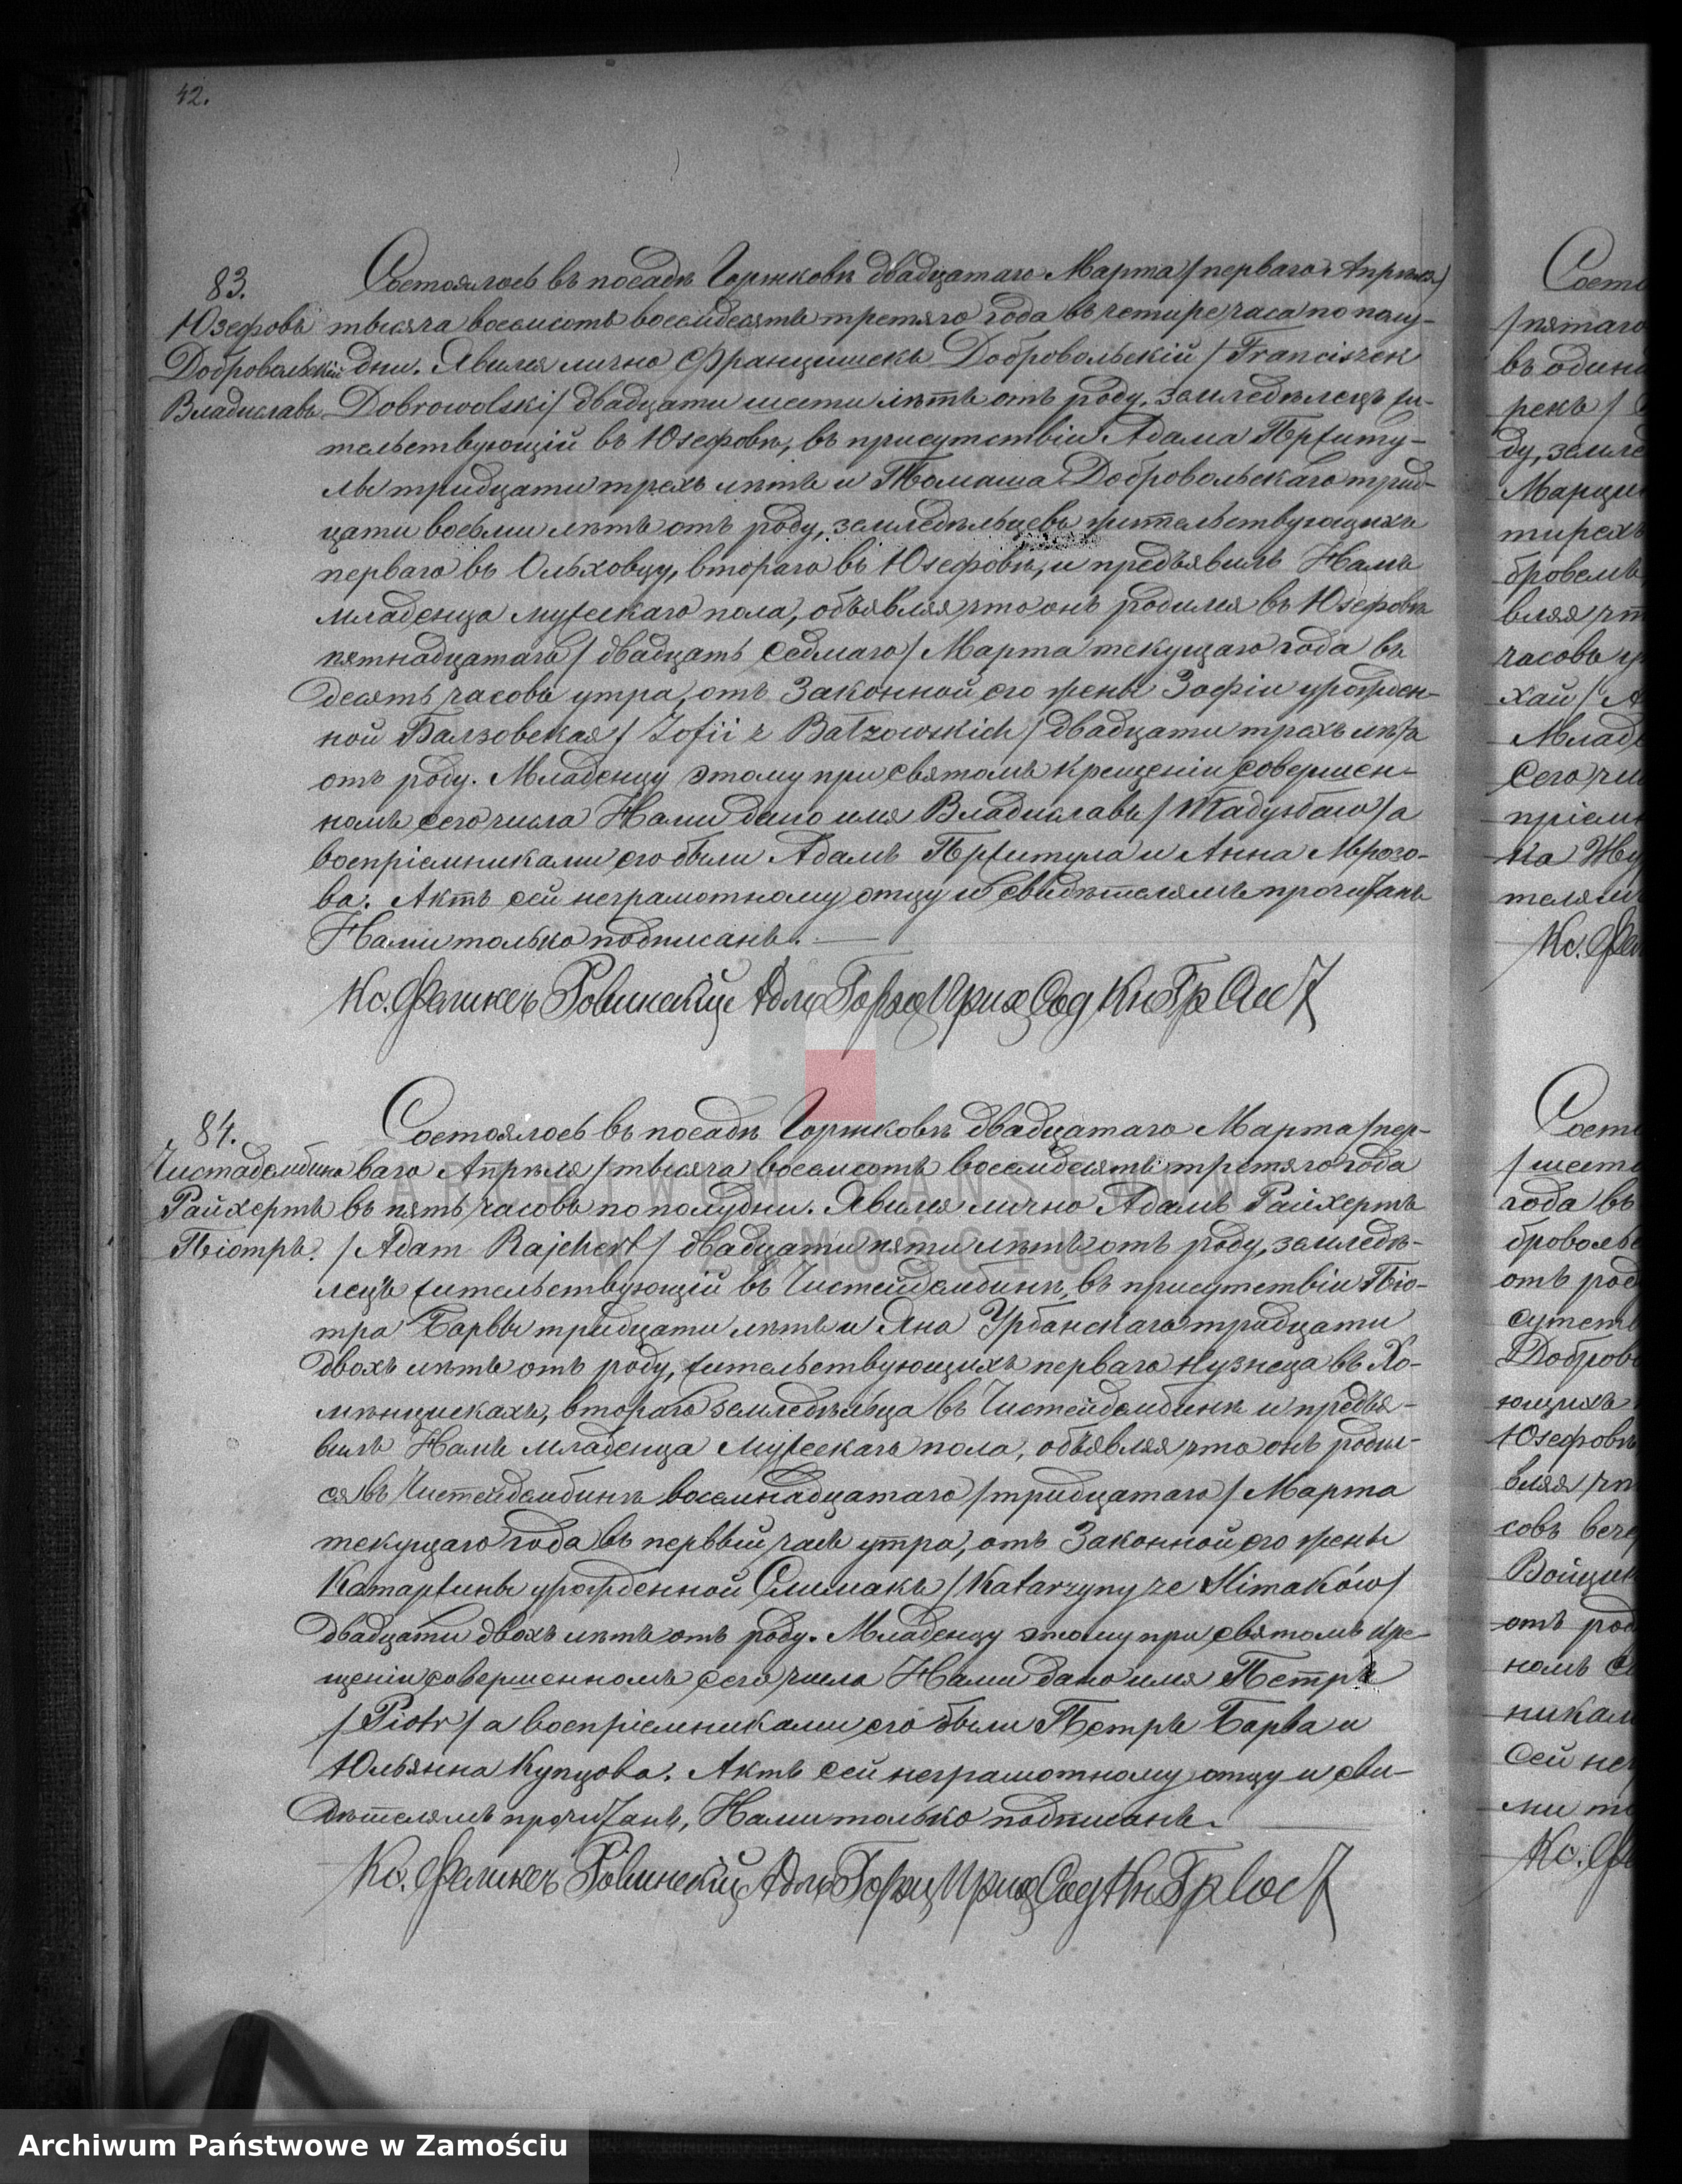 42.
83.
Юзефовъ
Добровольскій
Владиславъ
Состоялось въ посадѣ Горжковѣ двадцатаго Марта /перваго Апрѣля/
тысяча восемсотъ восемдесятъ третяго года въ четыре часа по полу-
дни. Явился лично Францишекъ Добровольскій / Franciszek
Dobrowolski / двадцати шести лѣтъ отъ роду, земледѣлецъ жи-
тельствующій въ Юзефовѣ, въ присутствіи Адама Пржиту-
лы тридцати трехъ лѣтъ и Томаша Добровольскаго трид-
цати восьми лѣтъ отъ роду, земледѣльцевъ жительствующихъ
перваго въ Ольховцу, втораго въ Юзефовѣ, и предъявилъ Намъ
младенца мужескаго пола, объявляя что онъ родился въ Юзефовѣ
пятнадцатаго / двадцать седмаго / Марта текущаго года въ
десять часовъ утра, отъ Законной его жены Зофіи урожден-
ной Балзовская / Zofii z Bałzowskich / двадцати трехъ лѣтъ
отъ роду. Младенцу этому при святомъ крещеніи совершен-
номъ сего числа Нами дано имя Владиславъ / а
воспріемниками его были Адамъ Пржитула и Анна Мрозо-
ва. Актъ сей неграмотному отцу и свидѣтелямъ прочитанъ
Нами только подписанъ.
Кс. Феликсъ Ровинскій
84.
Чистадембина
Райхертъ
Піотръ.
Состоялось въ посадѣ Горжковѣ двадцатаго Марта /пер-
ваго Апрѣля / тысяча восемсотъ восемдесятъ третяго года
въ пять часовъ по полудни. Явился лично Адамъ Райхертъ
/ Adam Rajchert / двадцати пяти лѣтъ отъ роду, земледѣ-
лецъ жительствующій въ Чистейдембинѣ, въ присутствіи Піо-
тра Барвы тридцати лѣтъ и Яна Урбанскаго тридцати
двохъ лѣтъ отъ роду, жительствующихъ перваго кузнеца въ Хо-
мѣнцискахъ, втораго земледѣльца въ Чистейдембинѣ и предъя-
вилъ Намъ младенца мужескаго пола, объявляя что онъ родил-
ся въ Чистейдембинѣ восемнадцатаго / тридцатаго / Марта
текущаго года въ первый часъ утра, отъ Законной его жены
Катаржины урожденной Слимакъ / Katarzyny ze Slimaków /
двадцати двохъ лѣтъ отъ роду. Младенцу этому при святомъ кре-
щеніи совершенномъ сего числа Нами дано имя Петръ
/ Piotr / а воспріемниками его были Петръ Барва и
Юльянна Купцова. Актъ сей неграмотному отцу и сви-
дѣтелямъ прочитанъ, Нами только подписанъ.
Кс. Феликсъ Ровинскій
ARCHIWUM PAŃSTWOWE
W ZAMOŚCIU
Archiwum Państwowe w Zamościu